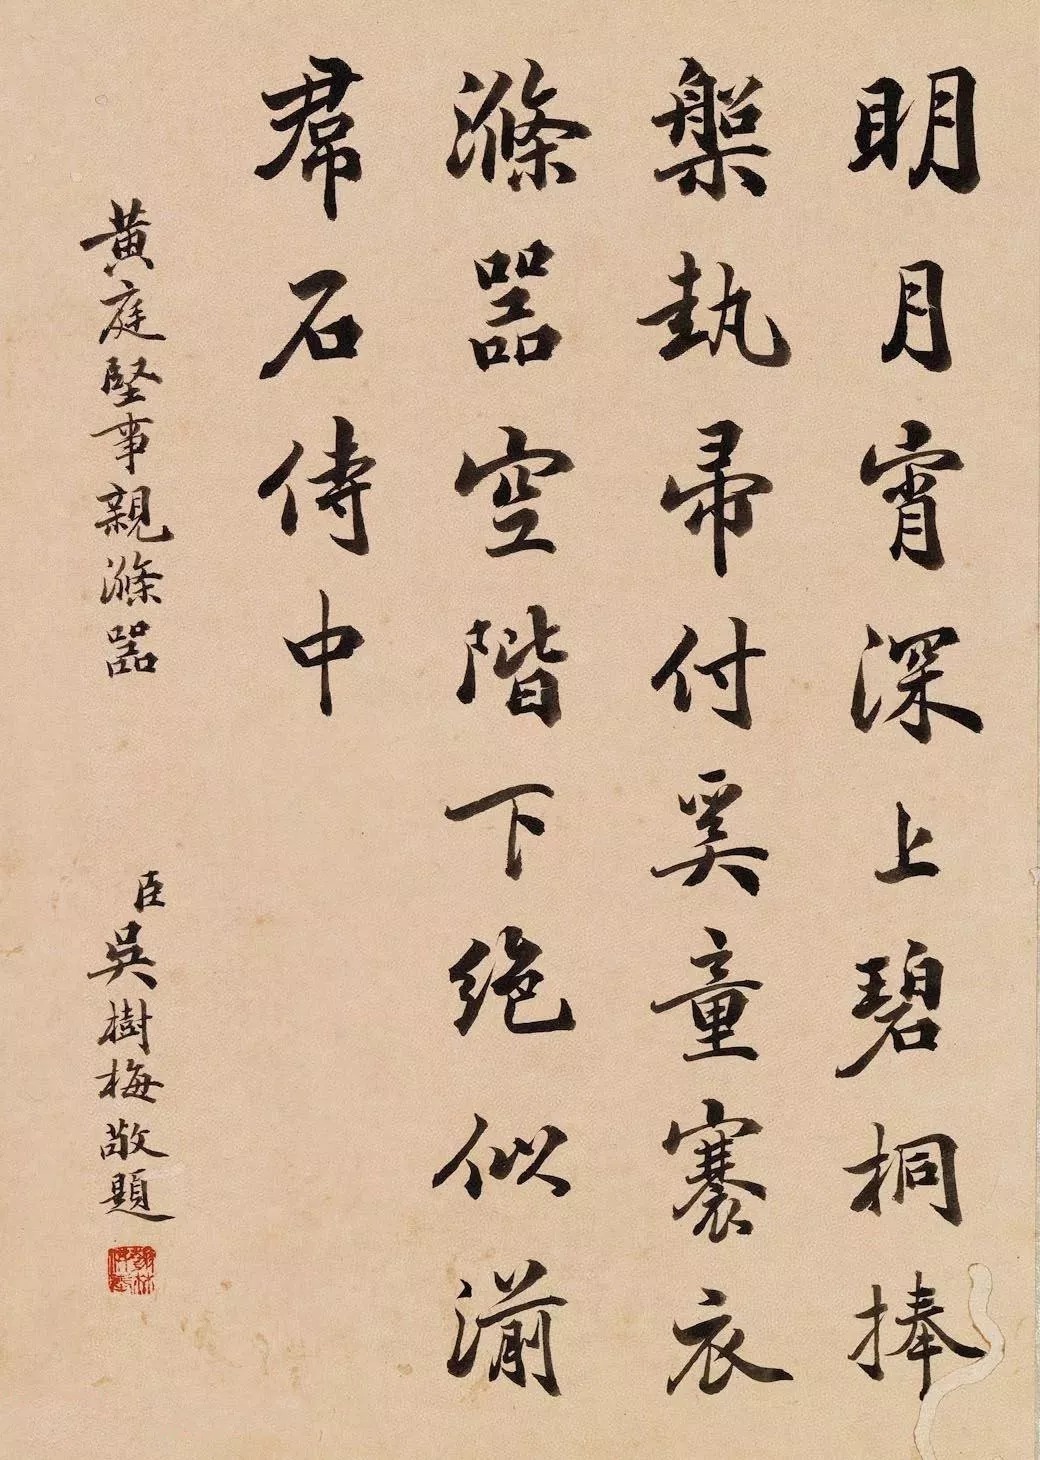 明月宵深上碧桐捧
槃執帚付奚童褰衣
滌噐空階下絶似湔
帬石侍中
黃庭堅事親滌噐
臣吳樹梅敬題